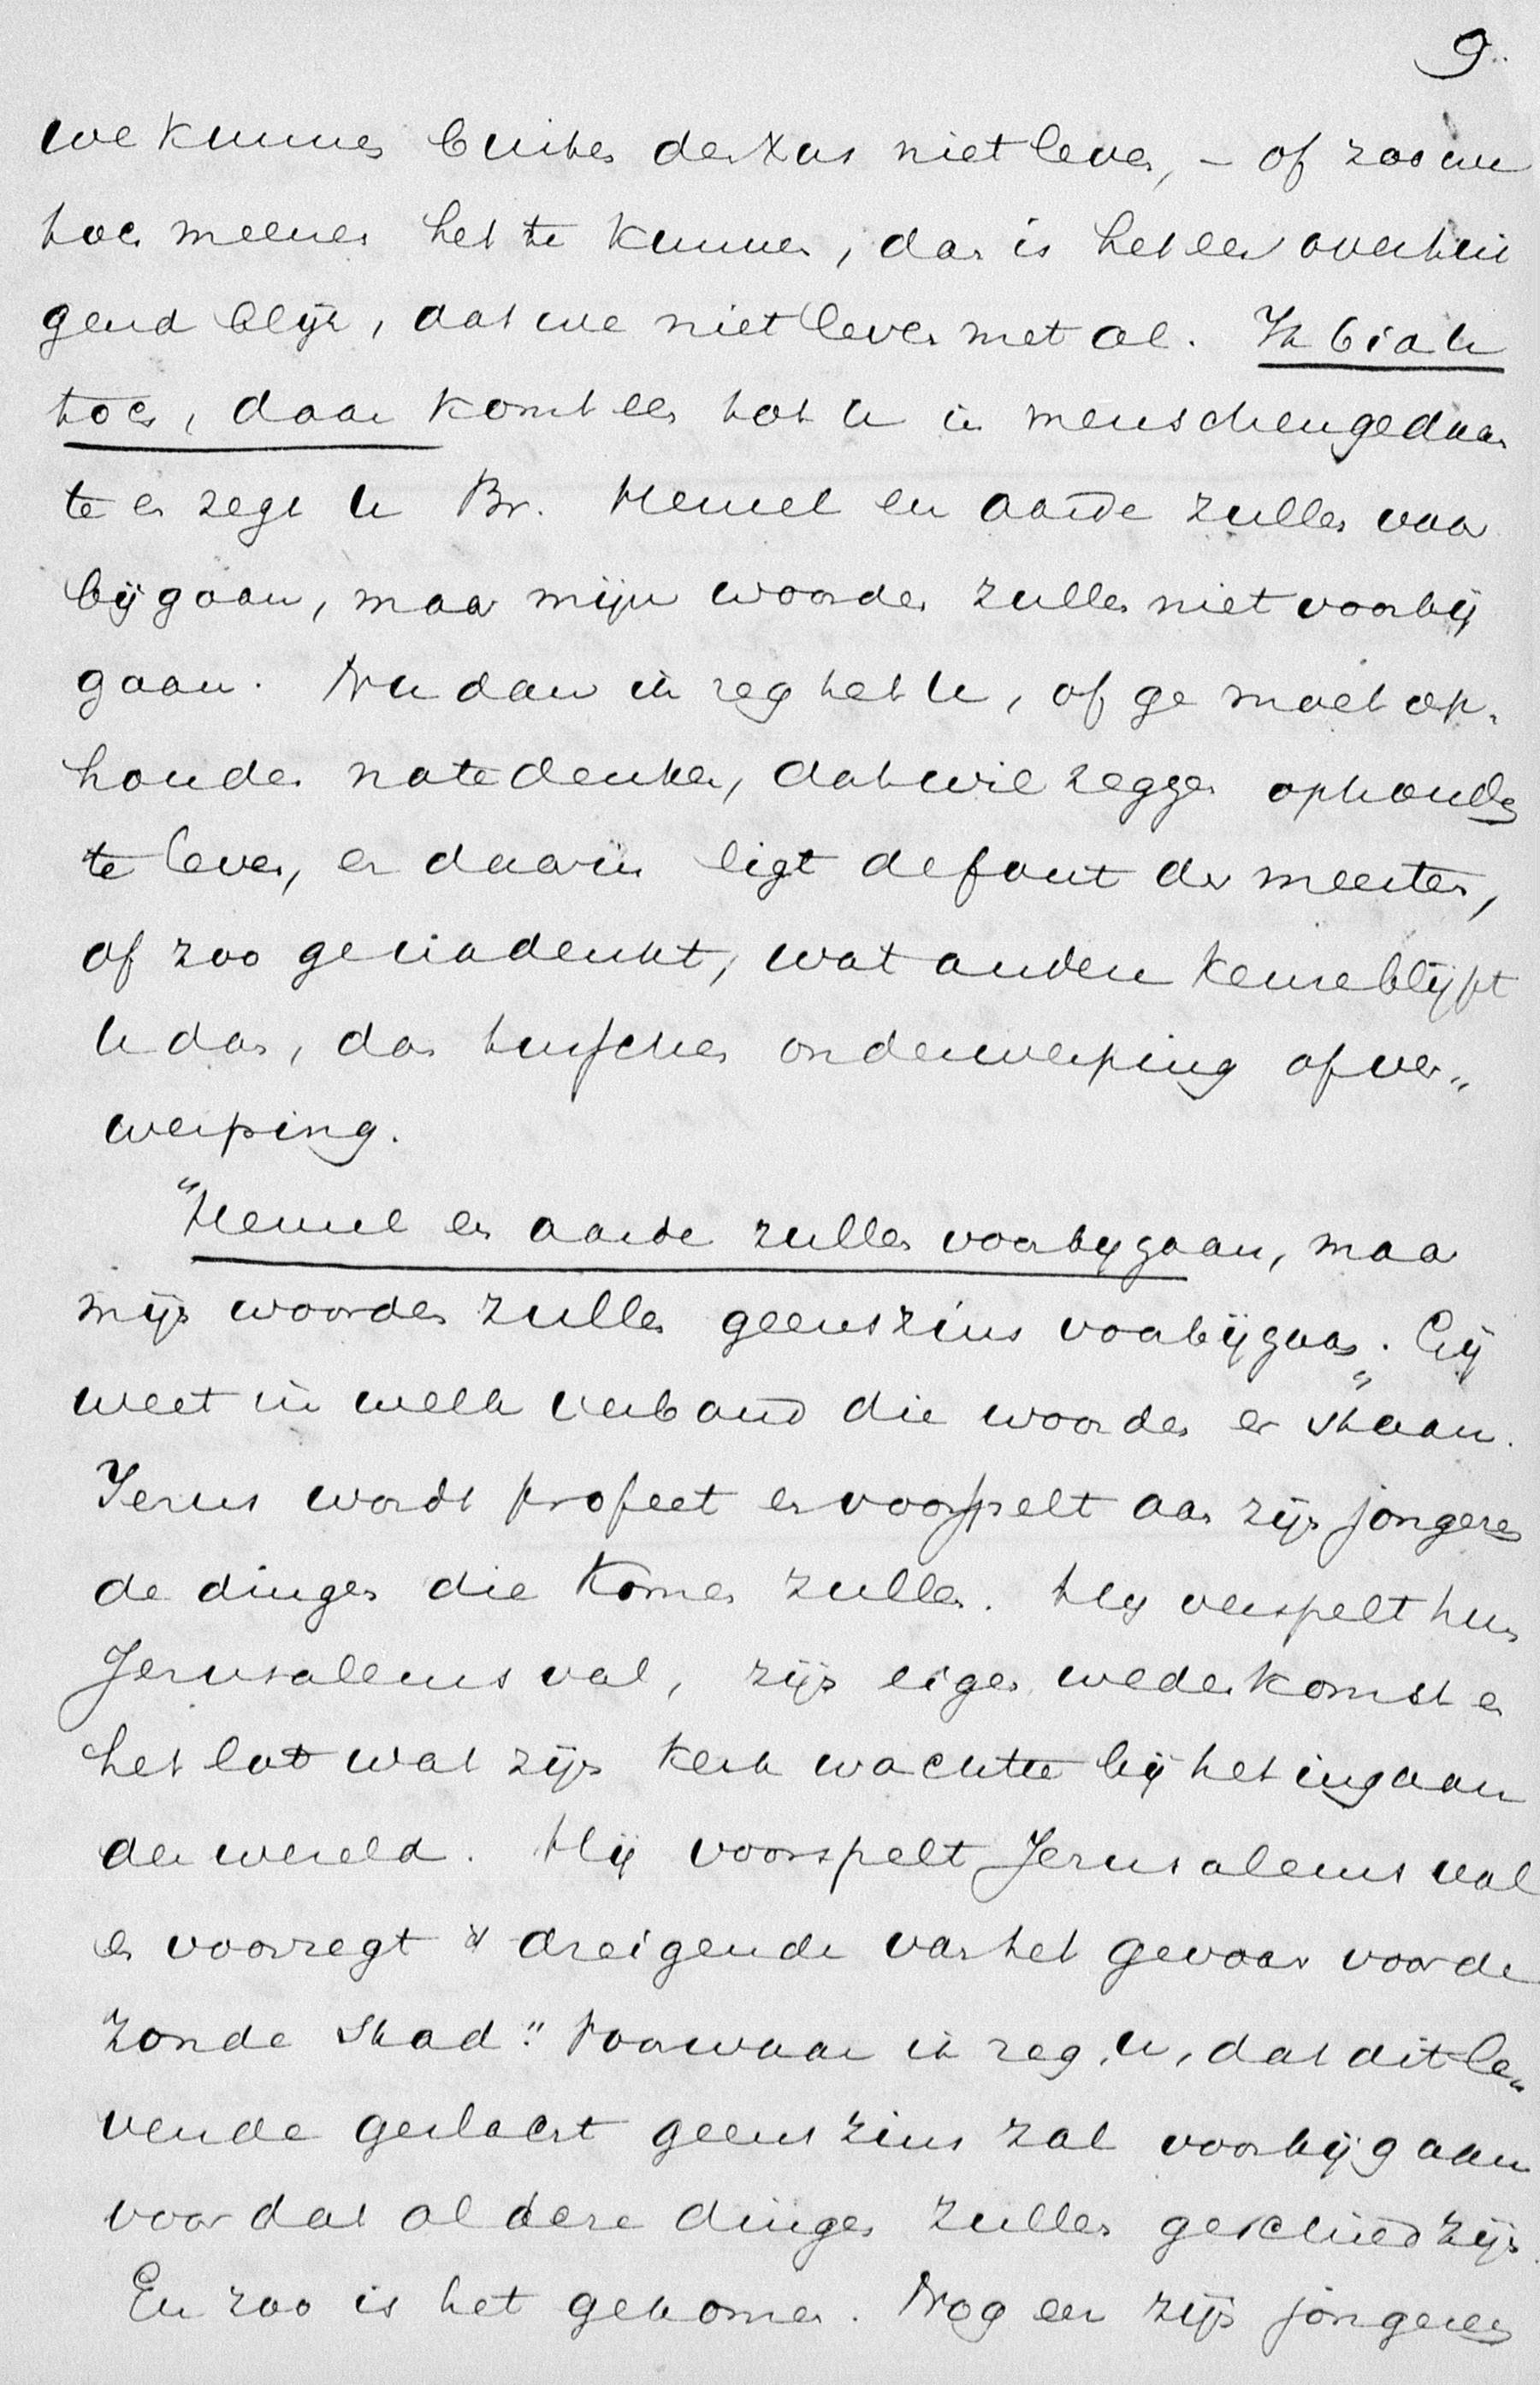 9.
we kunnen buiten den Xus niet leven, – of zoo we
toch meenen het te kunnen, dan is het een overtui
gend blijk, dat we niet leven met al. Ik bid u
toch, daar komt een tot u in menschengedaan
te en zegt u Br. Hemel en aarde zullen voor
bijgaan, maar mijn woorden zullen niet voorbij
gaan. Nu dan ik zeg het u, of ge moet op-
houden na te denken, dat wil zeggen ophouden
te leven, en daarin ligt de fout der meesten,
of zoo ge nadenkt, wat andere keuze blijft
u dan, dan tusschen onderwerping of ver„
werping.
"Hemel en aarde zullen voorbijgaan, maar
mijn woorden zullen geenszins voorbijgaan". Gij
weet in welk verband die woorden er staan.
Jezus wordt profeet en voorspelt aan zijn jongeren
de dingen die komen zullen. Hij verspelt hun
Jerusalems val, zijn eigen wederkomst en
het lot wat zijn kerk wachtte bij het ingaan
der wereld. Hij voorspelt Jerusalems val
en voorzegt 't dreigende van het gevaar voor de
zonde stad: "Voorwaar ik zeg u, dat dit le„
vende geslacht geenszins zal voorbijgaan
voordat al deze dingen zullen geschied zijn
En zoo is het gekomen. Nog een zijn jongeren